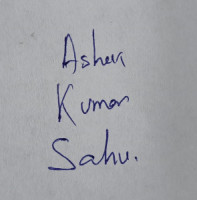 Ashek
Kumar
Sahu.